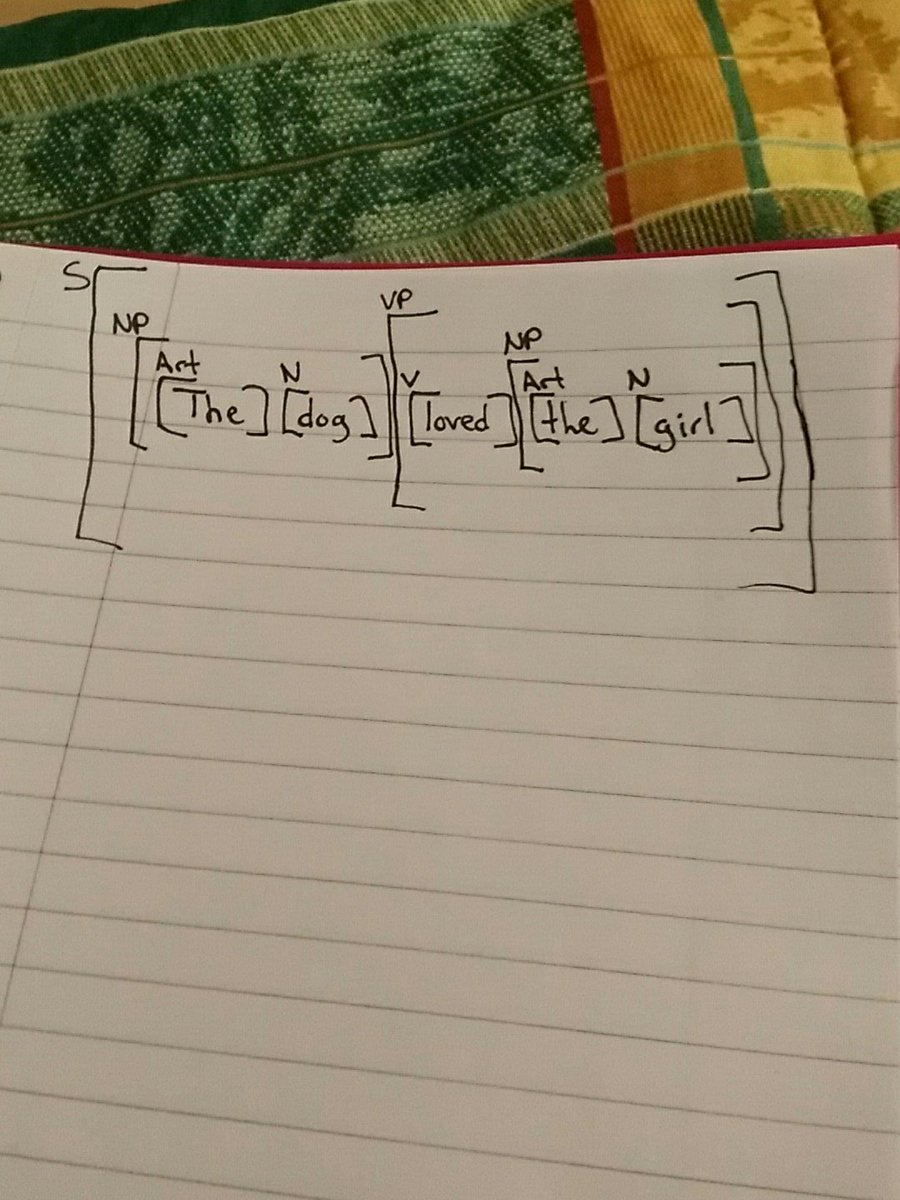 S[NP[Art[The] N[dog]] VP[V[loved] NP[Art[the] N[girl]]]]